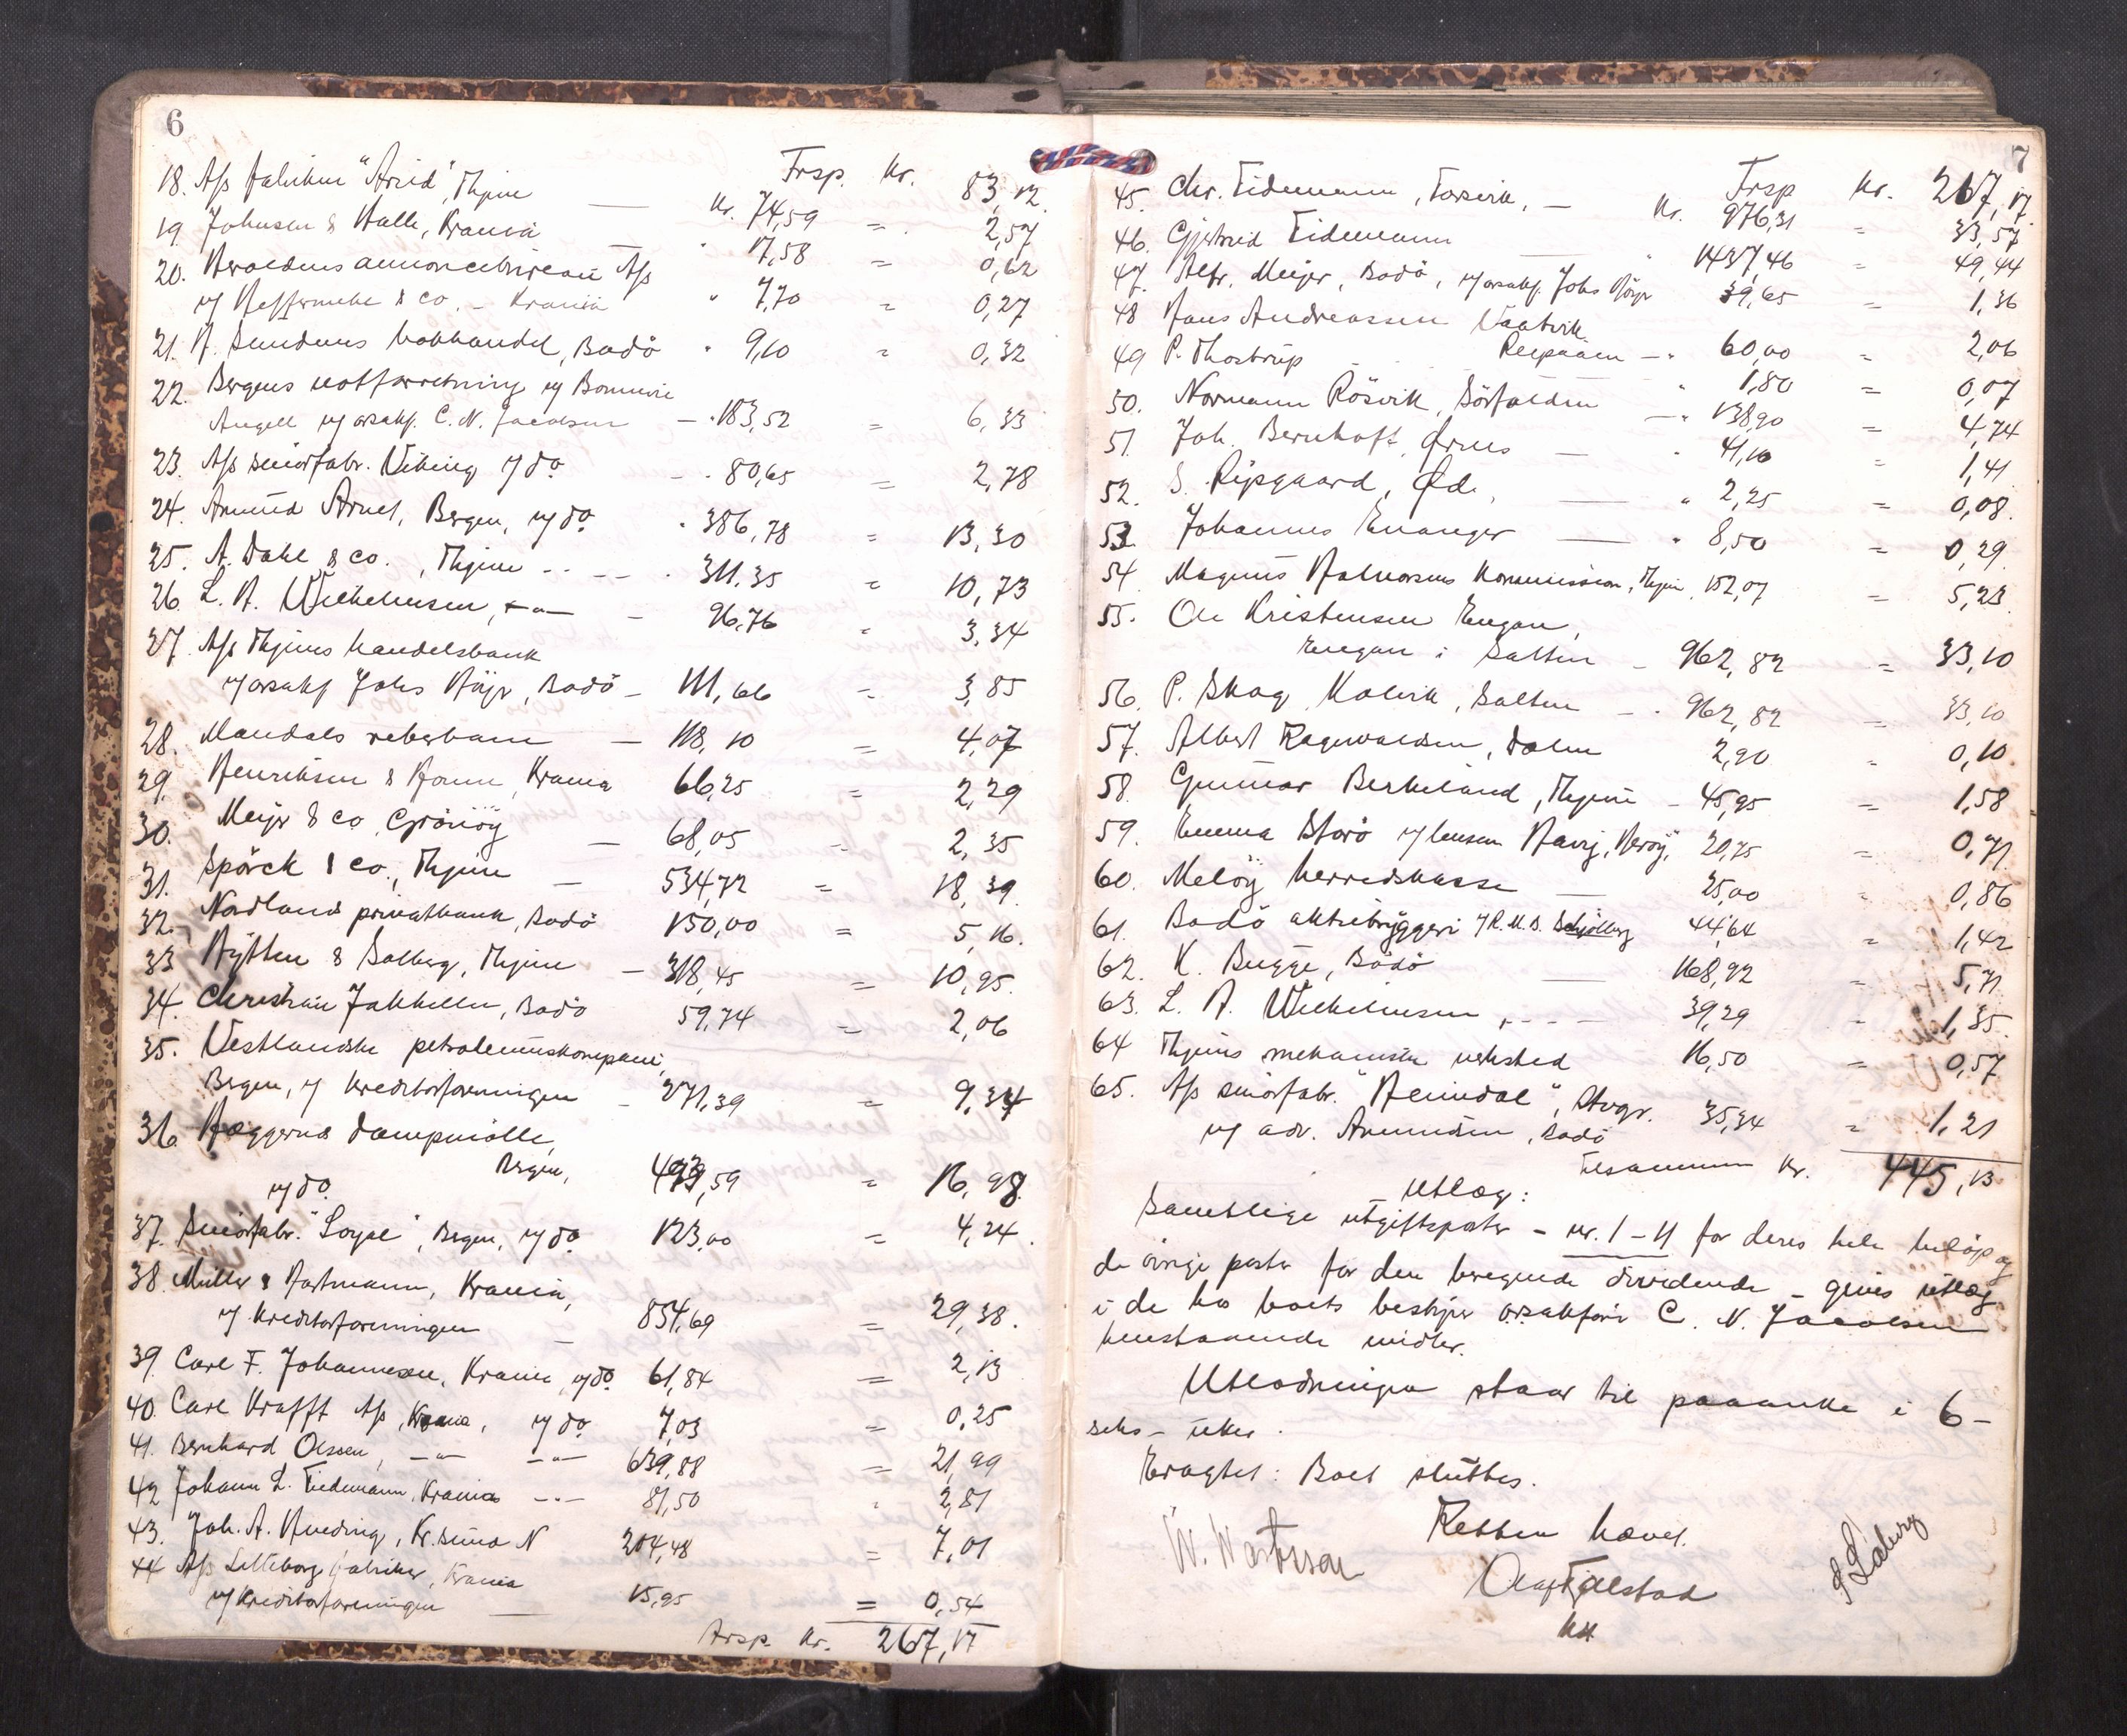 6
Trsp. Kr. 83,12.
18. A/s fabriken "Arild", Thjem — Kr. 74,59 = 2,57
19 Johnsen & Halle, Krania " 17,58 = 0,62
20. Heroldens annoncebureau A/s
v/ Høffermehl & co. – Krania " 7,70 = 0,27
21. N. Sundems bokhandel, Bodö " 9,10 = 0,32
22. Bergens notforretning v/ Bommen
Angell v/ orsakf. C. N. Jacobsen — " 183,52 = 6,33
23. A/s smörfabr. Viking v/ do - " 80,65 = 2,78
24. Amund Arnet, Bergen, v/ do " 386,78 = 13,30
25. A. Dahl & co., Thjem - - - " 311,35 = 10,73
26. L. A. Wilhelmsen, — " — – 96,76 = 3,34
27 A/s Thjems handelsbank
v/ orsakf Johs Höyer, Bodö – 111,66 = 3,85
28. Mandals reberbane — 118,10 = 4,07
29. Henriksen & Horne, Krania 66,25 = 2,29
30. Meyer & co, Grönöy — 68,05 = 2,35
31. Spörck & co., Thjem — 534,72 = 18,39.
32. Nordlands privatbank, Bodö 150,00 = 5,16.
33 Hytten & Solberg, Thjem — 318,45 = 10,95.
34. Christian Jakhelln, Bodö 59,74 = 2,06
35. Vestlandske petroleumskompani,
Bergen, v/ Kreditorforeningen – 271,39 = 9,34
36 Hæggernæs dampmölle,
Bergen,
v/ do 493,59 = 16,98
37. Smörfabr. "Loyal", Bergen, v/ do 123,00 = 4,24.
38. Müller & Hartmann, Krania,
v/ Kreditorforeningen – 854,69 = 29,38.
39. Carl F. Johannesen, Krania, v/ do 61,84 = 2,13
40. Carl Krafft A/s, Krania, v/ do 7,03 = 0,25
41. Bernhard Olssen, – " – – " – 639,88 = 21,99
42 Johann L. Tiedemann, Krania – " – 81,50 " 2,81
43. Joh. A. Hveding, Kr.sund N 204,48 = 7,01
44 A/s Lilleborg fabriker, Krania
v/ Kreditorforeningen — 15,95 = 0,54
Trsp. Kr. 267,17
7
Trsp Kr. 267,17.
45. Chr. Tidemann, Torsvik, — Kr. 976,31 = 33,57
46. Gjertrud Tidemann — " 1437,46 = 49,44
47. Alfr. Meyer, Bodö, v/ orsakf. Johs Höyer 39,65 = 1,36
48 Hans Andreassen Vaatvik
Reipaaen – " 60,00 = 2,06
49 P. Thostrup - - " 1,80 = 0,07
50. Normann Rösvik, Sörfolden – " 138,90 = 4,74
51. Joh. Bernhoft, Ørnes — " 41,10 = 1,41
52. S. Ripgaard, Ød. — " 2,25 = 0,08.
53. Johannes Enanger — " 8,50 = 0,29.
54. Magnus Halvorsens Kommission, Thjem, 152,07 = 5,23.
55. Ole Kristensen Engan,
Engan i Salten – 962,82 = 33,10
56. P. Skog Kolvik, Salten – " 962,82 = 33,10
57. Albert Ragnvaldsen, Dalen 2,90 " 0,10.
58. Gunnar Berkeland, Thjem – 45,95 = 1,58
59. Emma Storö v/ lensm Havig, Heröy, 20,75 = 0,71
60. Melöy herredskasse — 25,00 = 0,86
61. Bodö aktiebryggeri v/ R.M.B. Schjölberg 44,64 = 1,42
62. K. Bugge, Bodö — 168,92 = 5,71
63. L. A. Wilhelmsen, - - - 39,29 = 1,35.
64 Thjems mekaniske verksted 16,50 = 0,57
65. A/s smörfabr. "Heimdal", Stvgr.
v/ adv. Amundsen, Bodö 35,34 = 1,21
Tilsammen Kr. 445,13
Utlæg:
Samtlige utgiftsposter – nr. 1 – 11 for deres hele belöp og
de övrige poster for den beregnede dividende – gives utlæg
i de hos boets bestyrer orsakförer C. N. Jacobsen
henstaaende midler.
Utlodningen staar til paaanke i 6 –
seks – uker.
Eragtet: Boet sluttes.
Retten hævet.
W. Wartssen
Olaf Fjelstad
kst
S Söberg